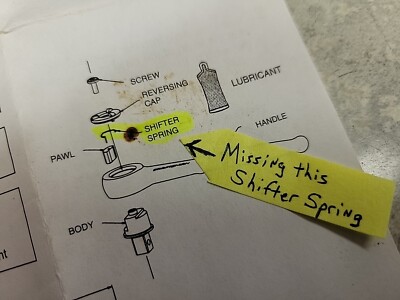 SCREW
REVERSING
CAP
LUBRICANT
SHIFTER
SPRING
HANDLE
PAWL
Missing this
Shifter Spring
BODY
nt